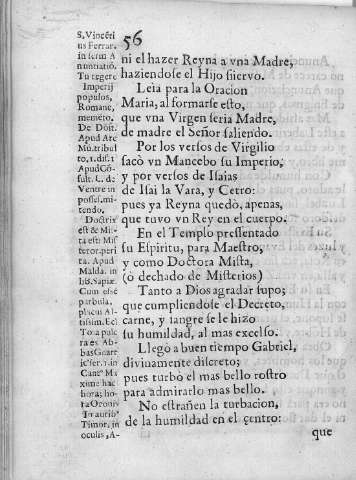 56
S. Vincéti
us Ferrar.
in serm A
nuntiatió.
Tu regere
Imperij
populos,
Romane,
memẽto.
De Dõst.
Apud Are
Mu. tribul
to, 1. dis. 1
Apud Cõ-
sult. L. de
Ventre in
possess. mi-
tendo.
Doctrix
est & Mis-
ta est: Mis
teror. peri
ta. Apud
Malda. in
lib. Sapiæ.
Cum esse
parbula.
placui Al-
tissim. Ecl
Tota pulc
ra es Ab-
bas Guarr
Maxime hac
hora;
Timor, in
oculis, A-
ni el hazer Reyna a vna Madre,
haziendose el Hijo siervo.
Leìa para la Oracion
Maria, al formarse esto,
que vna Virgen seria Madre,
de madre el Señor saliendo.
Por los versos de Virgilio
sacò vn Mancebo su Imperio,
y por versos de Isaias
de Isai la Vara, y Cetro:
pues ya Reyna quedò, apenas,
que tuvo vn Rey en el cuerpo.
En el Templo presentado
su Espiritu, para Maestro,
y como Doctora Mista,
(ò dechado de Misterios)
Tanto a Dios agradar supo;
que cumpliendose el Decreto,
carne, y sangre se le hizo
su humildad, al mas excelso.
Llegò a buen tiempo Gabriel,
divinamente discreto;
pues turbò el mas bello rostro
para admirarlo mas bello.
No estrañen la turbacion,
de la humildad en el centro:
que